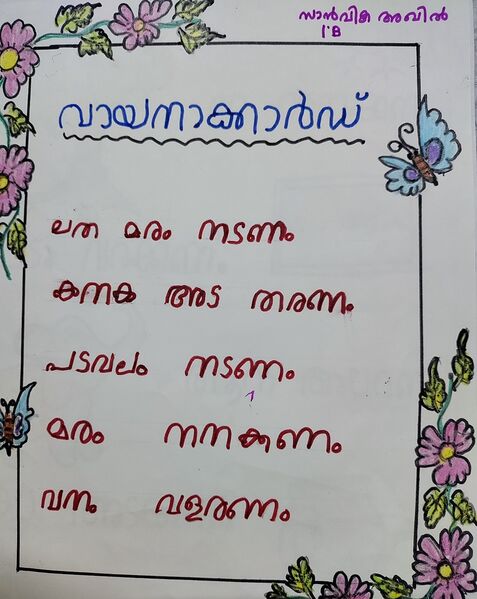 സാൻവിക അഖിൽ
1 B
വായനാക്കാർഡ്
ലത മരം നടണം
കനക അട തരണം
പടവലം നടണം
മരം നനക്കണം
വനം വളരണം